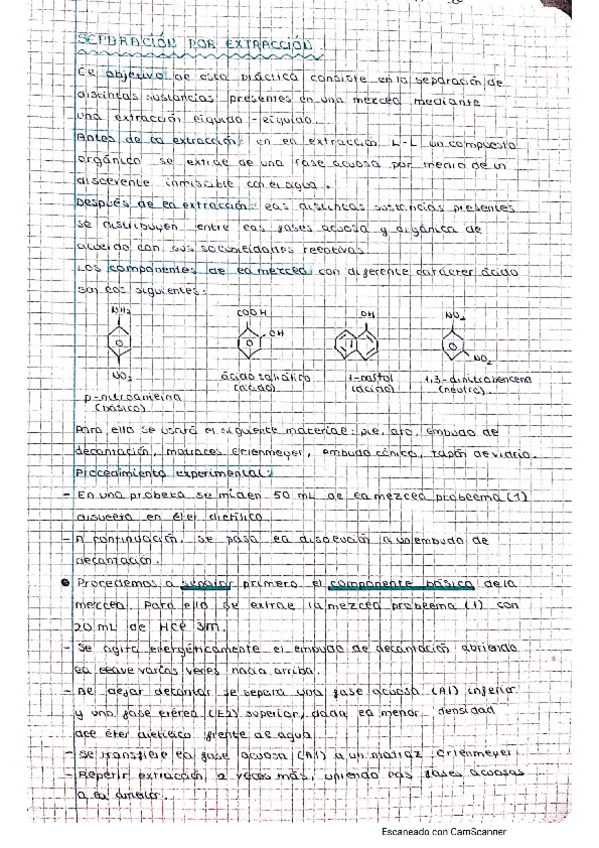 SEPARACIÓN POR EXTRACCIÓN
El objetivo de esta práctica consiste en la separación de
distintas sustancias presentes en una mezcla mediante
una extracción líquido-líquido.
Antes de la extracción: en la extracción L-L un compuesto
orgánico se extrae de una fase acuosa por medio de un
disolvente inmiscible con el agua.
Después de la extracción: las distintas sustancias presentes
se distribuyen entre las fases acuosa y orgánica de
acuerdo con sus solubilidades relativas.
Los componentes de la mezcla con diferente carácter ácido
son los siguientes:
NH2 COOH OH NO2
OH
NO2 NO2
ácido salicílico 1-naftol 1,3-dinitrobenceno
(ácido) (ácido) (neutro)
p-nitroanilina
(básico)
Para ello se usará el siguiente material: pie, aro, embudo de
decantación, matraces Erlenmeyer, embudo cónico, tapón de vidrio.
Procedimiento experimental:
- En una probeta se miden 50 mL de la mezcla problema (1)
disuelta en éter dietílico
- A continuación, se pasa la disolución a un embudo de
decantación.
• Procedemos a separar primero el componente básico de la
mezcla. Para ello se extrae la mezcla problema (1) con
20 mL de HCl 3M.
- Se agita energéticamente el embudo de decantación abriendo
la llave varias veces hacia arriba.
- Al dejar decantar se separa una fase acuosa (A1) inferior
y una fase etérea (E2) superior, dada la menor densidad
del éter dietílico frente de agua
- Se transfiere la fase acuosa (A1) a un matraz Erlenmeyer.
- Repetir extracción 2 veces más, uniendo las fases acuosas
a la anterior.
Escaneado con CamScanner